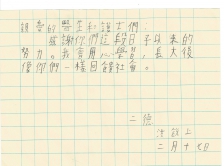 親愛的醫生和護士們：
感謝你們這段日子以來的
努力。我會用心學習，長大後
像你們一樣回饋社會。
二德
上
二月十七日